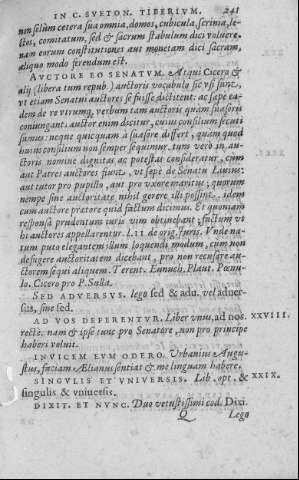 IN C. SVETON. TIBERIVM. 241
non solum cetera sua omnia, domos, cubicula, scrinia, le-
ctos, comitatum, sed & sacrum stabulum dici voluere.
nam eorum constitutiones aut monetam dici sacram,
aliquo modo ferendum est.
AVCTORE EO SENATVM. Atqui Cicero &
alij (libera tum repub.) auctoris vocabulo sic vsi sunt,
vt etiam Senatui auctores se fuisse dictitent: ac sæpe ea-
dem de re vtrumq; verbum tam auctoris quàm suasoris
coniungant. auctor enim dicitur, cuius consilium secuti
sumus: neque quicquam à suasore differt, quàm quod
huius consilium non semper sequimur. tum verò in au-
ctoris nomine dignitas ac potestas consideratur, cùm
aut Patres auctores fiunt, vt sæpe de Senatu Liuius:
aut tutor pro pupillo, aut pro vxore maritus; quorum
nempe sine auctoritate nihil gerere illi possint. idem
cum auctore prætore quid factum dicimus. Et quoniam
responsa prudentum iuris vim obtinebant, factum vt
hi auctores appellarentur. l. II. de orig. Iuris. Vnde na-
tum puto elegantem illum loquendi modum, cum non
defugere auctoritatem dicebant, pro non recusare au-
ctorem sequi aliquem. Terent. Eunuch. Plaut. Pœnu-
lo. Cicero pro P. Sulla.
SED ADVERSVS. lego sed & adu. vel aduer-
sus, sine sed.
AD VOS DEFERENTVR. Liber vnus, ad nos. XXVIII.
rectè. nam & ipse tunc pro Senatore, non pro principe
haberi voluit.
INVICEM EVM ODERO. Vrbanius Augu-
stus, faciam Ælianus sentias & me linguam habere.
SINGVLIS ET VNIVERSIS. Lib. opt. & XXIX.
singulis & vniuersis.
DIXIT. ET NVNC. Duo vetustissimi cod. Dixi.
Q Lego